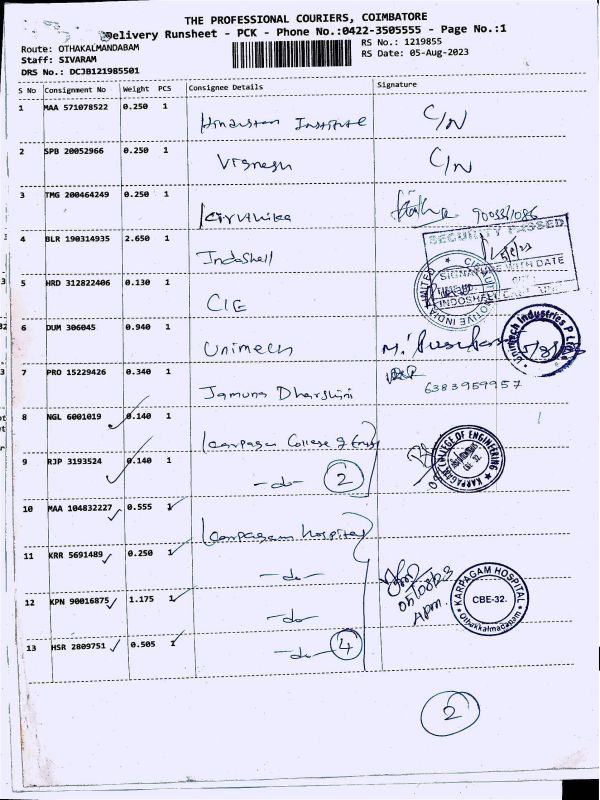 THE PROFESSIONAL COURIERS, COIMBATORE
Delivery Runsheet - PCK - Phone No.:0422-3505555 - Page No.:1
Route: OTHAKALMANDABAM
RS No.: 1219855
Staff: SIVARAM
RS Date: 05-Aug-2023
DRS No.: DCJB121985501
S No Consignment No Weight PCS Consignee Details Signature
1 MAA 571078522 0.250 1
Hindustan Institute C/N
2 SPB 20052966 0.250 1
Vignesh C/N
3 TMG 200464249 0.250 1
Kirthika
SECURITY PASSED
4 BLR 190314935 2.650 1
Indoshell
SIGNATURE WITH DATE
5 HRD 312822406 0.130 1
CIE
6 DUM 306045 0.940 1
Unimech
Unimech Industries P Ltd
7 PRO 15229426 0.340 1
Jamuna Dharshini 6383959957
8 NGL 6001019 0.140 1
Karpagam College of Engg
KARPAGAM COLLEGE OF ENGINEERING
CBE-32.
9 RJP 3193524 0.140 1
-do- 2
10 MAA 104832227 0.555 1
Karpagam Hospital
11 KRR 5691489 0.250 1
-do-
05/08/23
KARPAGAM HOSPITAL
CBE-32.
Othakkalmandapam
12 KPN 90016875 1.175 1
-do-
13 HSR 2809751 0.505 1
-do- 4
2